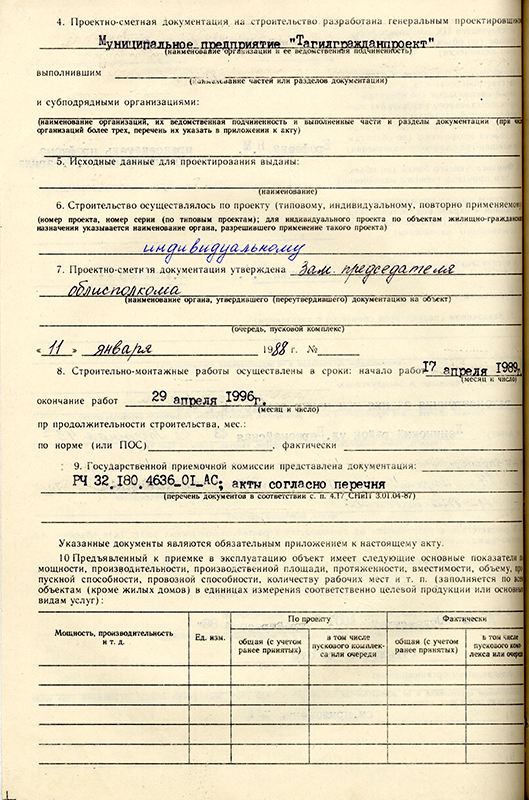 4. Проектно-сметная документация на строительство разработана генеральным проектировщико
Муниципальное предприятие "Тагилгражданпроект"
(наименование организации и ее ведомственная подчиненность)
выполнившим
(наименование частей или разделов документации)
и субподрядными организациями:
(наименование организаций, их ведомственная подчиненность и выполненные части и разделы документации (при
организаций более трех, перечень их указать в приложении к акту)
5. Исходные данные для проектирования выданы:
(наименование)
6. Строительство осуществлялось по проекту (типовому, индивидуальному, повторно применяемо
(номер проекта, номер серии (по типовым проектам); для индивидуального проекта по объектам жилищно-граждан
назначения указывается наименование органа, разрешившего применение такого проекта)
индивидуальному
7. Проектно-сметная документация утверждена Зам. председателя
облисполкома
(наименование органа, утвердившего (переутвердившего) документацию на объект)
(очередь, пусковой комплекс)
« 11 » января 1988 г. №
8. Строительно-монтажные работы осуществлены в сроки: начало работ 17 апреля 1989г.
(месяц и число)
окончание работ 29 апреля 1996г.
(месяц и число)
пр продолжительности строительства, мес.:
по норме (или ПОС) , фактически
9. Государственной приемочной комиссии представлена документация:
РЧ 32.180.4636_01_АС; акты согласно перечня
(перечень документов в соответствии с. п. 4.17 СНиП 3.01.04-87)
Указанные документы являются обязательным приложением к настоящему акту.
10 Предъявленный к приемке в эксплуатацию объект имеет следующие основные показатели
мощности, производительности, производственной площади, протяженности, вместимости, объему, про
пускной способности, провозной способности, количеству рабочих мест и т. п. (заполняется по все
объектам (кроме жилых домов) в единицах измерения соответственно целевой продукции или основны
видам услуг):
Мощность, производительность и т. д. Ед. изм. По проекту Фактически
общая (с учетом ранее принятых) в том числе пускового комплекса или очереди общая (с учетом ранее принятых) в том числе пускового комплекса или очере